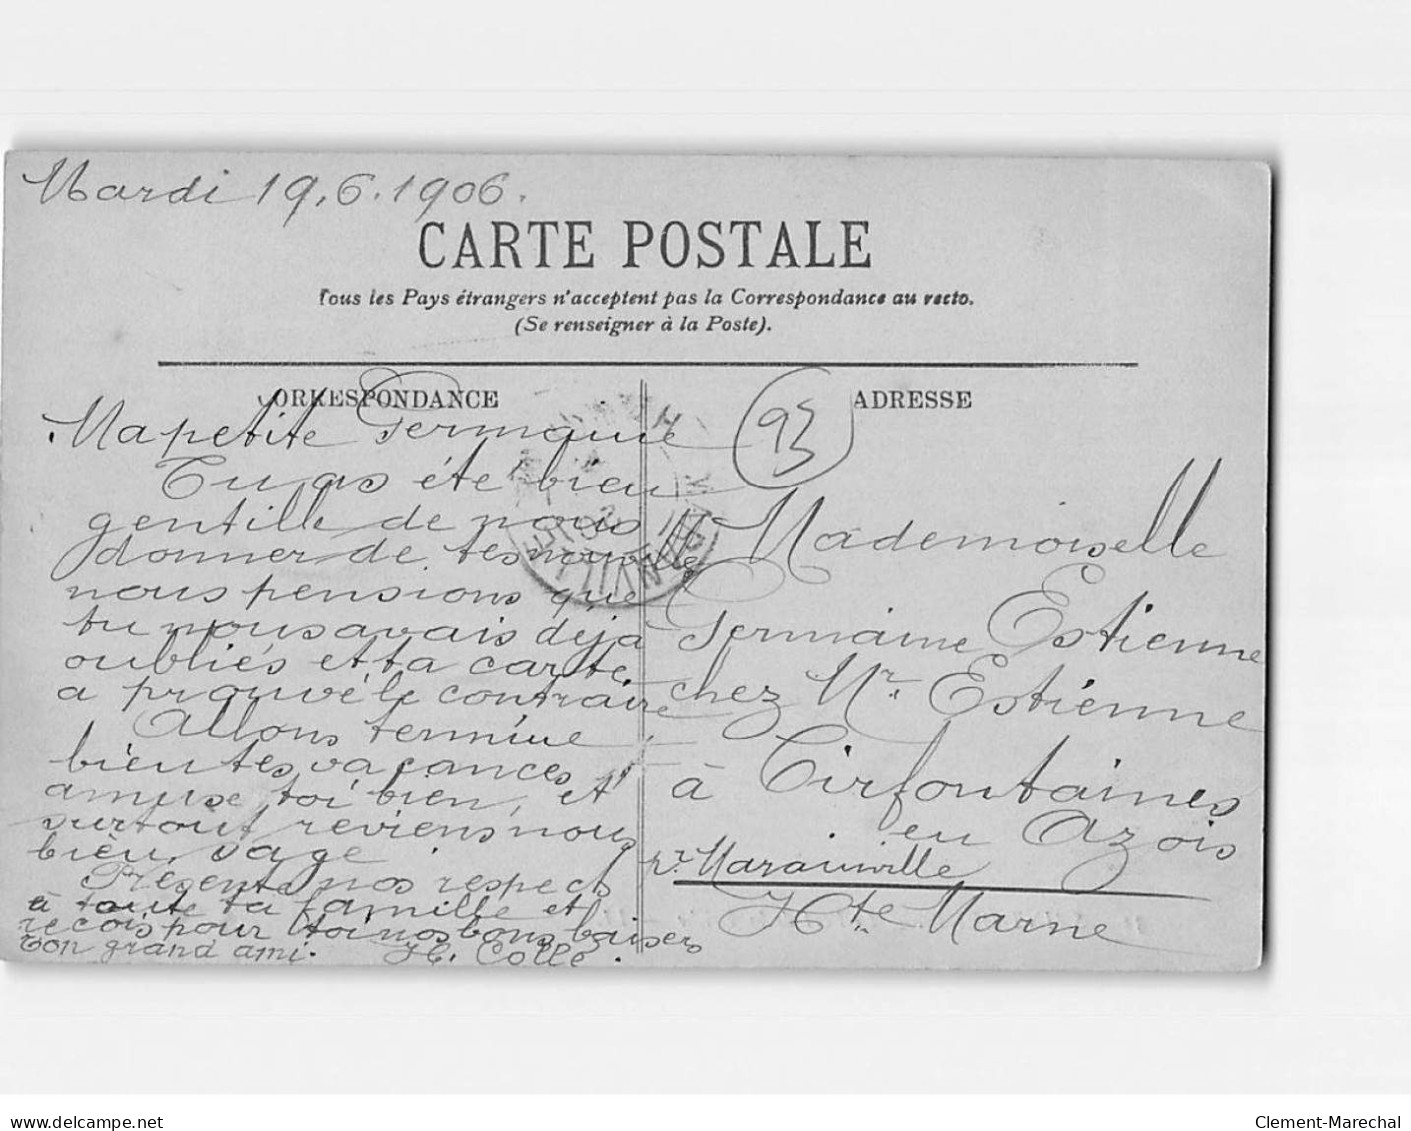 Mardi 19.6.1906.
CARTE POSTALE
Tous les Pays étrangers n'acceptent pas la Correspondance au recto.
(Se renseigner à la Poste).
CORRESPONDANCE
Ma petite Germaine
Tu as été bien
gentille de nous
donner de tes nouvelles
nous pensions que
tu nous avais déja
oubliés et ta carte
a prouvé le contraire
Allons termine
bien tes vacances
amuse toi bien, et
surtout reviens nous
bien sage.
Présente nos respects
à toute ta famille et
reçois pour toi nos bons baisers
Ton grand ami. H. Colle.
ADRESSE
93
Mademoiselle
Germaine Estienne
chez Mr. Estienne
à Cirfontaines
en Azois
pr. Maranville
Hte Marne
delcampe.net
Clement-Marechal